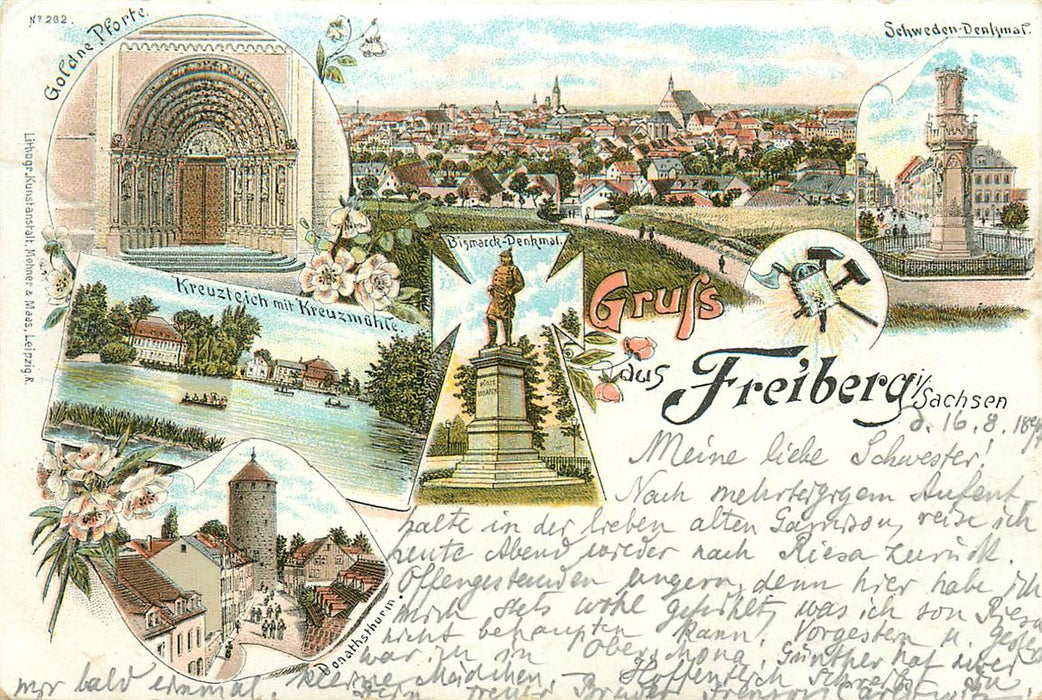 Nº 262.
Goldne Pforte.
Schweden-Denkmal.
Lithogr. Kunstanstalt. Mehner & Maas, Leipzig R.
Bismarck-Denkmal.
Kreuzteich mit Kreuzmühle.
Gruſs
aus
Freiberg i/Sachsen
Donathsthurm.
d. 16. 8. 189
Meine liebe Schwester!
Nach mehrtägigem Aufent
halte in der lieben alten Garnison, reise ich
heute Abend wieder nach Riesa zurück.
Offengestanden ungern, denn hier habe ich
mich stets wohl gefühlt, was ich von Riesa
nicht behaupten kann. Vorgestern u
war in Günther hat
kleine Mädchen. Hoffentlich schreibst Du
mir bald einmal.
Dein treuer Bruder